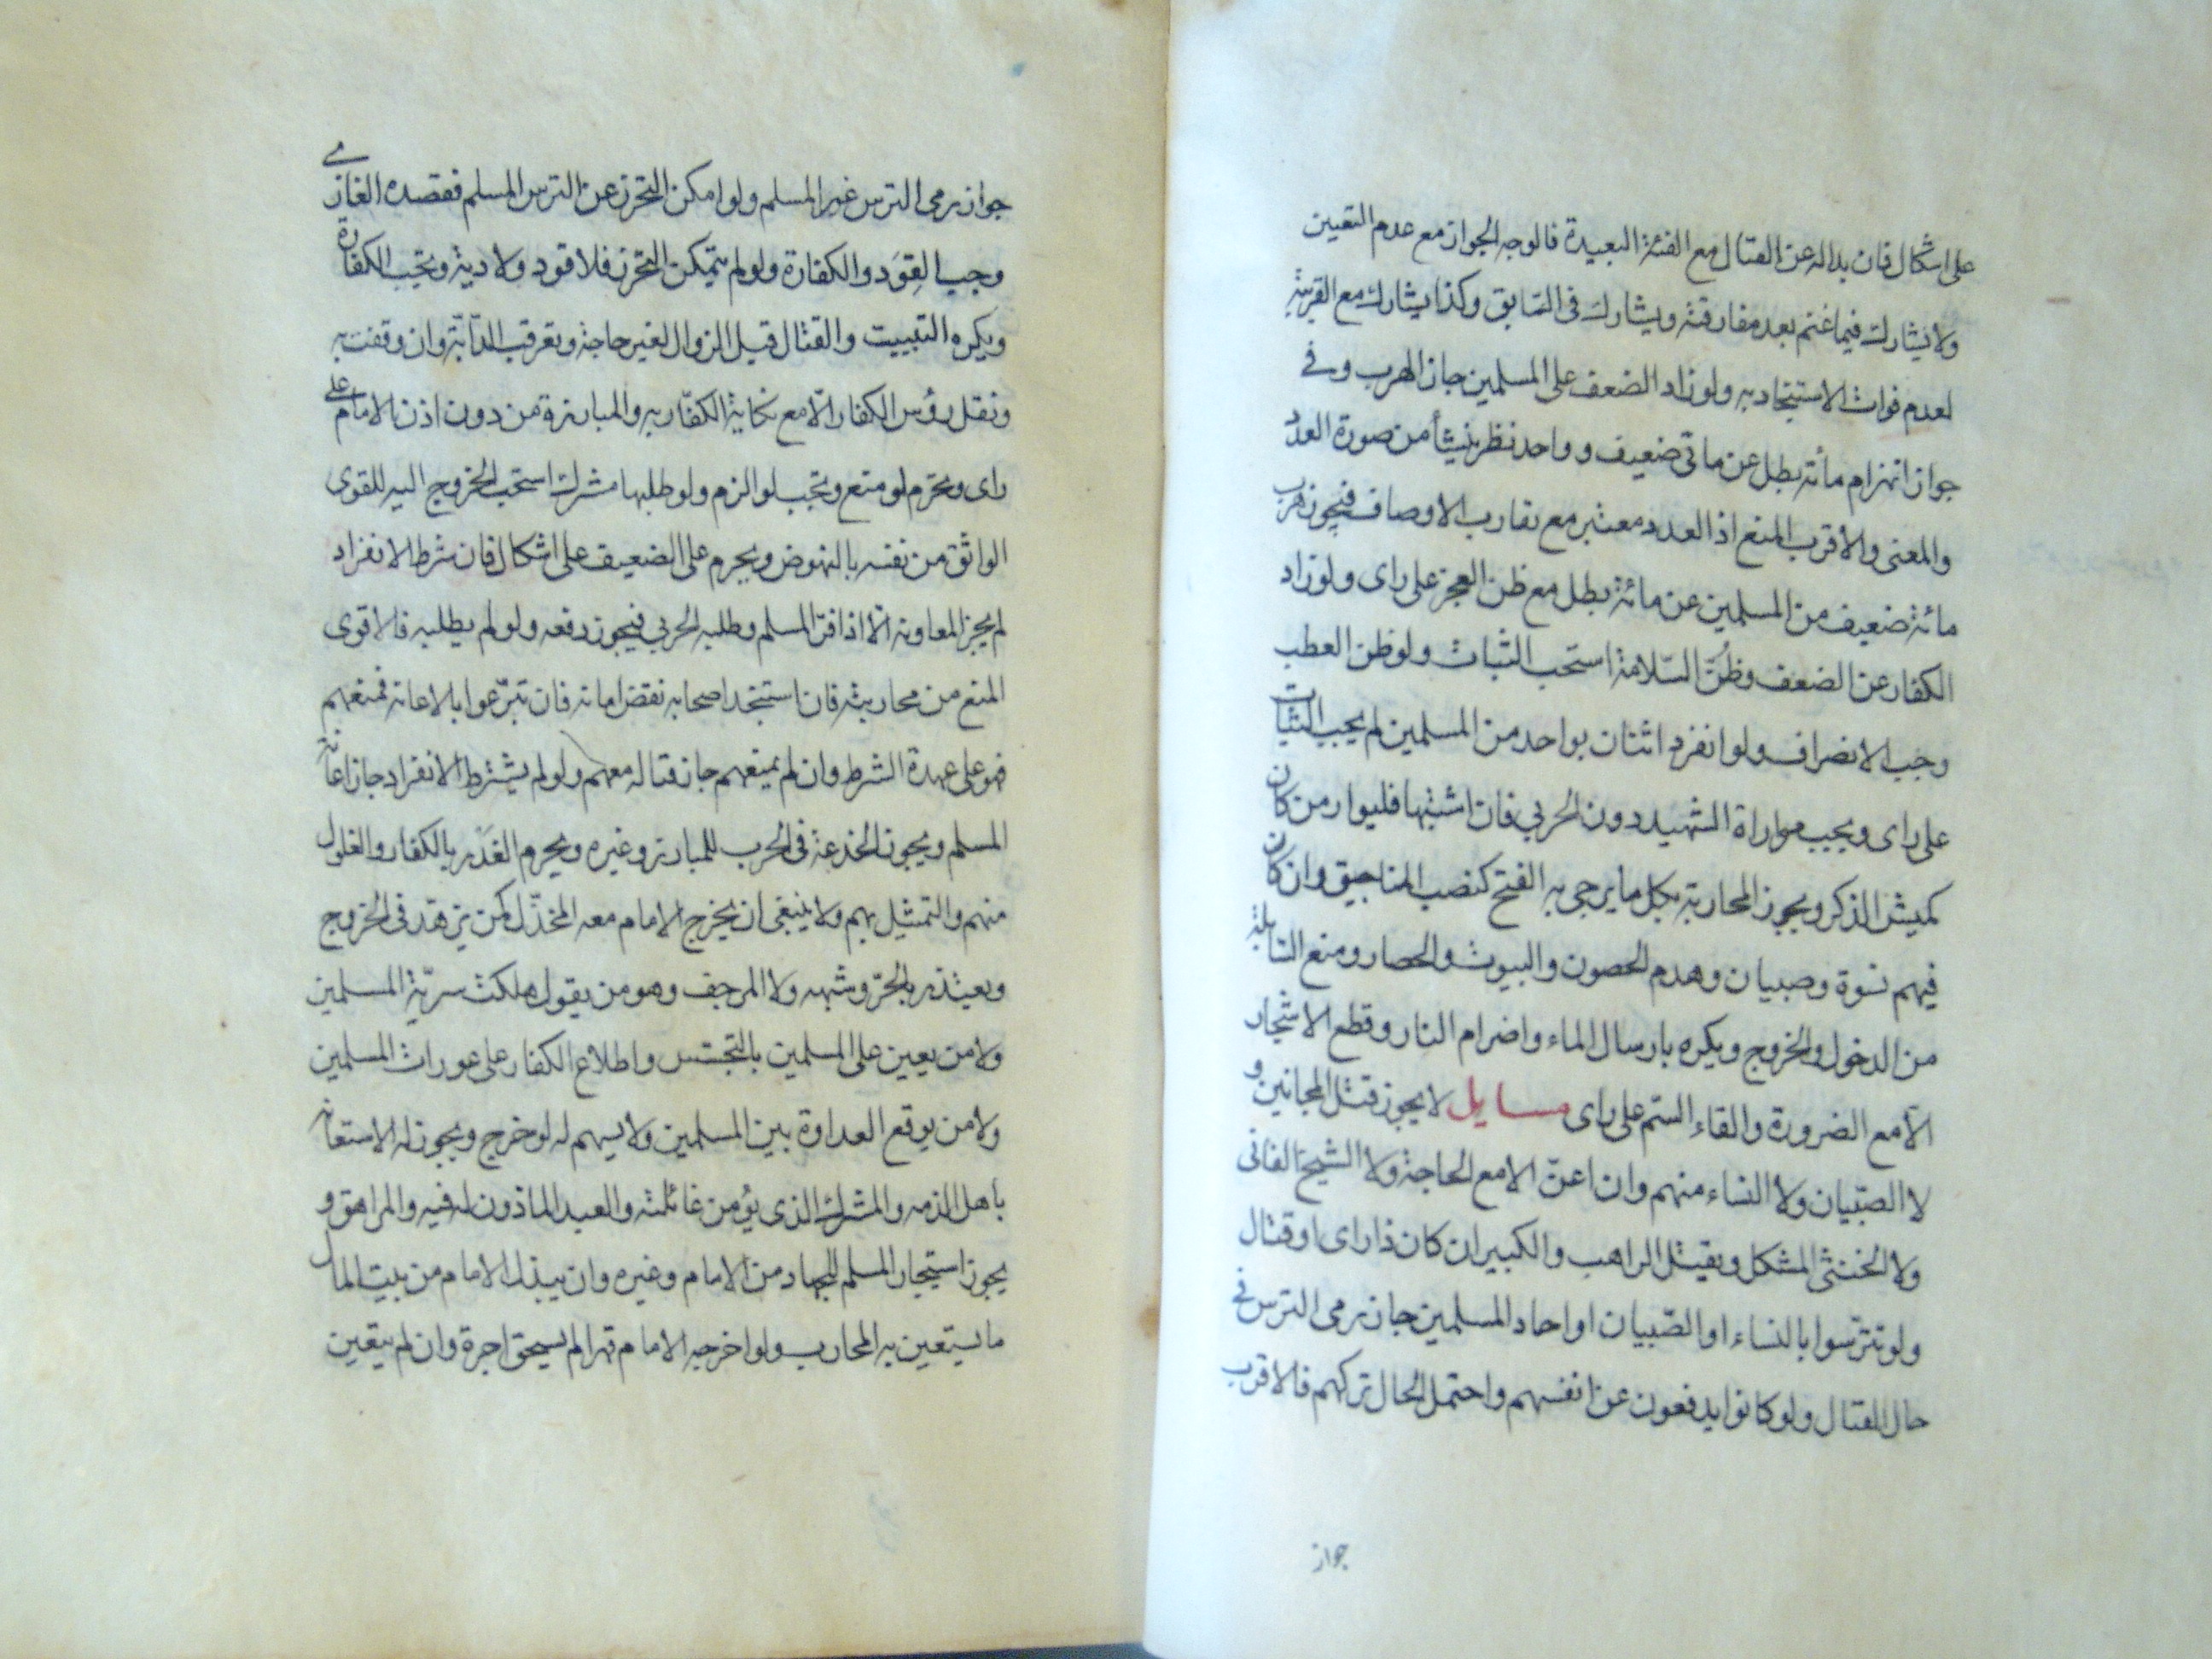 على اشكال فان بدا له عن القتال مع الفئة البعيدة فالوجه الجواز مع عدم التعيين
ولا يشارك فيما غنم بعد مفارقته ويشارك فى السابق وكذا يشارك مع القريبة
لعدم فوات الاستنجاد به ولو زاد الضعف على المسلمين جاز الهرب وفى
جواز انهزام مأته بطل عن ماتى ضعيف وواحد نظر ينشأ من صورة العدد
والمعنى والاقرب المنع اذ العدد معتبر مع تقارب الاوصاف فيجوز هرب
مائة ضعيف من المسلمين عن مائة بطل مع ظن العجز على راى ولو زاد
الكفار عن الضعف وظُنّ السّلامة استحب الثبات ولو ظن العطب
وجب الانصراف ولو انفرد اثنان بواحد من المسلمين لم يجب الثبات
على راى ويجب مواراة الشهيد دون الحربي فان اشتبها فليوار من كان
كميش الذكر ويجوز المحاربة بكل ما يرجى به الفتح كنصب المناجيق وان كان
فيهم نسوة وصبيان وهدم الحصون والبيوت والحصار ومنع السابلة
من الدخول والخروج ويكره بارسال الماء واضرام النار وقطع الاشجار
الّا مع الضرورة والقاء السّم على راى مسايل لا يجوز قتل المجانين و
لا الصبّيان ولا النساء منهم وان اعنّ الا مع الحاجة ولا الشيخ الفانى
ولا الخنثى المشكل ويقتل الراهب والكبير ان كان ذا راى او قتال
ولو تترّسوا بالنساء او الصّبيان او احاد المسلمين جاز رمى الترس فى
حال القتال ولو كانوا يدفعون عن انفسهم واحتمل الحال تركهم فالاقرب
جواز
جواز رمى الترس غير المسلم ولو امكن التحرز عن الترس المسلم فقصده الغازى
وجب القِوَد والكفارة ولو لم يتمكن التحرز فلا قود ولا دية وتجب الكفارة
ويكره التبييت والقتال قبل الزوال لغير حاجة وتعرقب الدّابّة وان وقفت به
ونقل رؤس الكفار الّا مع نكاية الكفّار به والمبارزة من دون اذن الامام على
راى وتحرم لو منع وتجب لو الزم ولو طلبها مشرك استحب الخروج اليه للقوى
الواثق من نفسه بالنهوض ويحرم على الضعيف على اشكال فان شرط الانفراد
لم يجز المعاونة الّا اذا فرّ المسلم وطلبه الحربي فيجوز دفعه ولو لم يطلبه فالاقوى
المنع من محاربته فان استنجد اصحابه نقض امانه فان تبرّعوا بالاعانة فمنعهم
فهو على عهدة الشرط وان لم يمنعهم جاز قتاله معهم ولو لم يشترط الانفراد جاز اعانة
المسلم ويجوز الخدعة فى الحرب للمبارز وغيره ويحرم الغَدْر بالكفار والغلول
منهم والتمثيل بهم ولا ينبغى ان يخرج الامام معه المخذّل كمن يزهّد فى الخروج
ويعتذر بالحرّ وشبهه ولا المرجف وهو من يقول هلكت سريّة المسلمين
ولا من يعين على المسلمين بالتجسّس واطلاع الكفار على عورات المسلمين
ولا من يوقع العداوة بين المسلمين ولا يسهم له لو خرج ويجوز له الاستعانة
باهل الذمه والمشرك الذى يؤمن غائلته والعبد الماذون له فيه والمراهق و
يجوز استيجار المسلم للجهاد من الامام وغيره وان يبذل الامام من بيت المال
ما يستعين به المحارب ولو اخرجه الامام قهرا لم يستحق اجرة وان لم يتعين